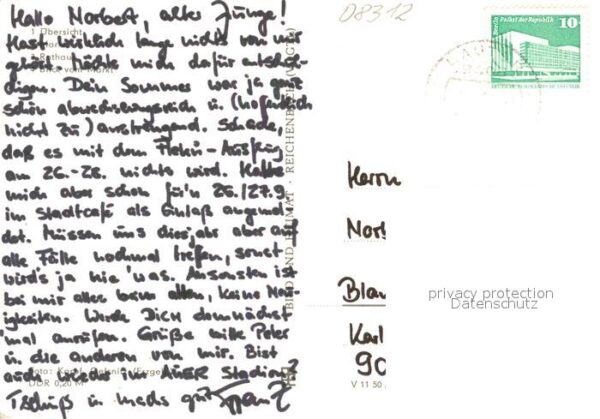 Hallo Norbert, alter Junge!
Hast wirklich lange nichts von mir
gehört. Möchte mich dafür entschul-
digen. Dein Sommer war ja ganz
schön abwechslungsreich u. (hoffentlich
nicht zu) anstrengend. Schade,
daß es mit dem Ausflug
am 26.-28. nichts wird. Hatte
mich aber schon für'n 26./27.9.
im Stadtcafé als Einlaß angemel-
det. Müssen uns dieses Jahr aber auf
alle Fälle nochmal treffen, sonst
wird's ja nie 'was. Ansonsten ist
bei mir alles beim alten, keine Neu-
igkeiten. Werde Dich demnächst
'mal anrufen. Grüße bitte Peter
u. die anderen von mir. Bist
auch wieder im AUER Stadion?
Tschüß u. machs gut
1 Übersicht
DDR 0,20 M
BILD UND HEIMAT · REICHENBACH (VOGTL)
V 11 50
08312
Berlin, Palast der Republik
10
Herrn
Nor
Blan
Karl
90
privacy protection
Datenschutz